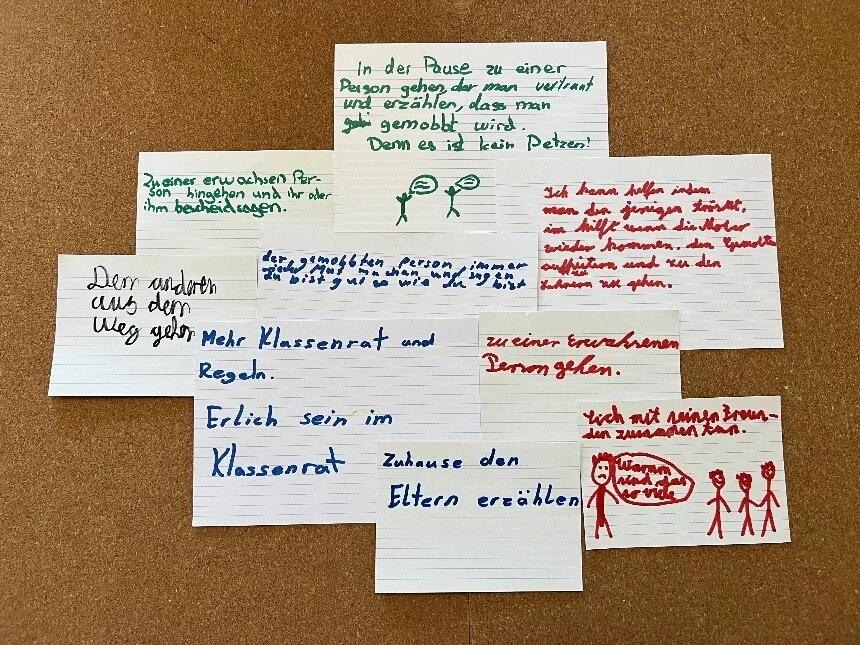 In der Pause zu einer
Person gehen, der man vertraut
und erzählen, dass man
gemobbt wird.
Denn es ist kein Petzen!
Zu einer erwachsen Per-
son hingehen und ihr oder
ihm bescheidsagen.
Ich kann helfen indem
man den jenigen tröstet,
im hilft wenn die Mober
wieder kommen. den Gemobte
und zu den
Lehrern zu gehen.
der gemobbten Person immer
wieder Mut machen und sagen
du bist gut so wie du bist
Dem anderen
aus dem
Weg gehen
Mehr Klassenrat und
Regeln.
Erlich sein im
Klassenrat
zu einer Erwahsenen
Person gehen.
Sich mit seinen Freun-
den zusammen tun.
Warum
sind das
so viele
Zuhause den
Eltern erzählen